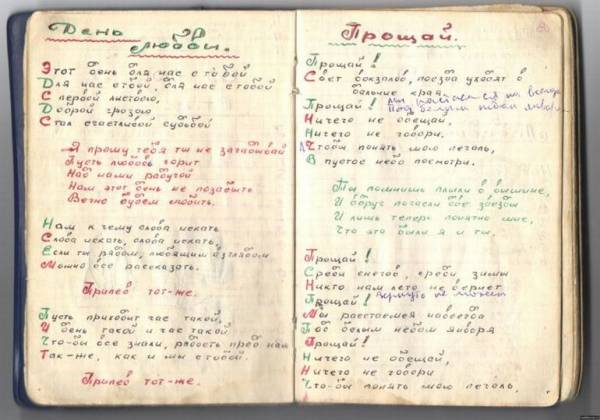 День
любви.
Этот день для нас с тобой
Для нас с тобой, для нас с тобой
С первой листвою,
Доброй грозою
Стал счастливой судьбой
Я прошу тебя ты не загадывай
Пусть любовь горит
Над нами радугой
Нам этот день не позабыть
Вечно будем любить.
Нам к чему слова искать
Слова искать, слова искать
Если ты рядом, любящим взглядом
Можно все рассказать.
Припев тот-же.
Пусть приходит час такой,
И день такой и час такой
Что-бы все знали, радость пред нами
Так-же, как и мы с тобой.
Припев тот-же.
Прощай.
Прощай!
Свет вокзалов, поезда уходят в
дальние края.
Прощай! Мы расстаемся навсегда
Под белым небом января
Ничего не обещай,
Ничего не говори.
Чтобы понять мою печаль,
В пустое небо посмотри.
Ты помнишь плыли в вышине,
И вдруг погасли две звезды
И лишь теперь понятно мне,
Что это были я и ты.
Прощай!
Среди снегов, среди зимы
Никто нам лето не вернет
Прощай! Вернуть не может
Мы расстаемся навсегда
Под белым небом января
Прощай!
Ничего не обещай,
Ничего не говори
Что-бы понять мою печаль,